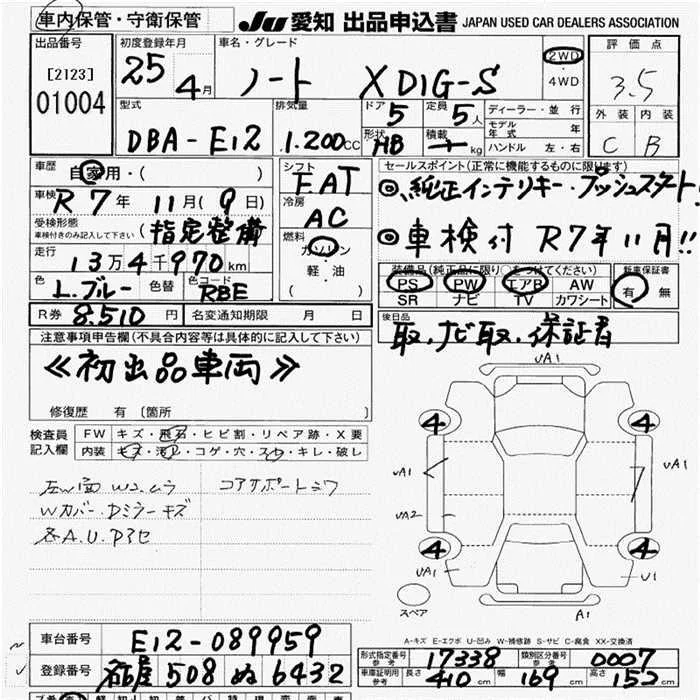 車内保管・守衛保管
JU 愛知 出品申込書 JAPAN USED CAR DEALERS ASSOCIATION
出品番号
[2123]
01004
初度登録年月
25 4月
車名・グレード
ノート X DIG-S
2WD
4WD
評価点
3.5
外装 内装
C B
型式
DBA-E12
排気量
1.200cc
ドア 5
形状 HB
定員 5人
積載 kg
ディーラー・並行
モデル年式 年
ハンドル 左・右
車歴
自家用・( )
車検
R7年 11月(9日)
受検形態
車検付きのみ記入して下さい (指定整備
走行
13万4千970km
色 L.ブルー 色替 色コード RBE
R券 8,510円 名変通知期限 月 日
シフト
FAT
冷房
AC
燃料
ガソリン
軽・油
( )
セールスポイント(正常に機能するものに限ります)
◎純正インテリキー・プッシュスタート
◎車検付 R7年11月!!
装備品(純正品に限り○をつけてください)
PS PW エアB AW
SR ナビ TV カワシート
新車保証書
有 無
後日品
取、ナビ取、保証書
注意事項申告欄(不具合内容等は具体的に記入して下さい)
≪初出品車両≫
修復歴 有 [箇所 ]
検査員記入欄
FW キズ・飛石・ヒビ割・リペア跡・X要
内装 キズ・汚れ・コゲ・穴・スレ・キレ・破レ
コアサポートシワ
Wカバー・Dミラーキズ
各A.U.Pアセ
UA1
4 4
UA1 UA1
UA2
4 4
UA1 U1
スペア
A1
A-キズ E-エクボ U-凹み W-補修跡 S-サビ C-腐食 XX-交換済
車台番号 E12-089959
登録番号 名古屋 508 ぬ 6432
形式指定番号 参考 17338 類別区分番号 参考 0007
車庫証明用 参考 長さ 410cm 幅 169cm 高さ 152cm